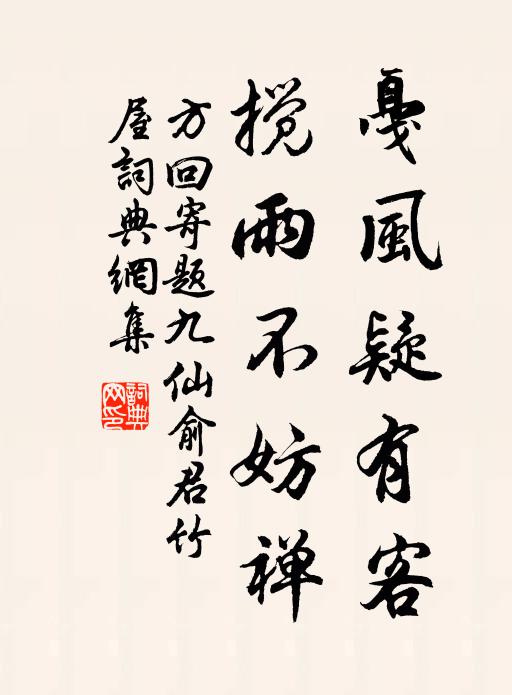 戛風疑有客
搅雨不妨禅
方回寄题九仙俞君竹
屋詞典網集
詞典网印